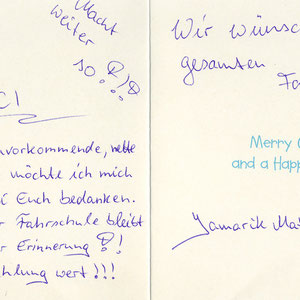 Macht
weiter
so!!!
CI
nvorkommende, nette
möchte ich mich
i Euch bedanken.
r Fahrschule bleibt
r Erinnerung !!
hlung wert!!!
Wir wünsc
gesamten
Fa
Merry C
and a Happ
Mat